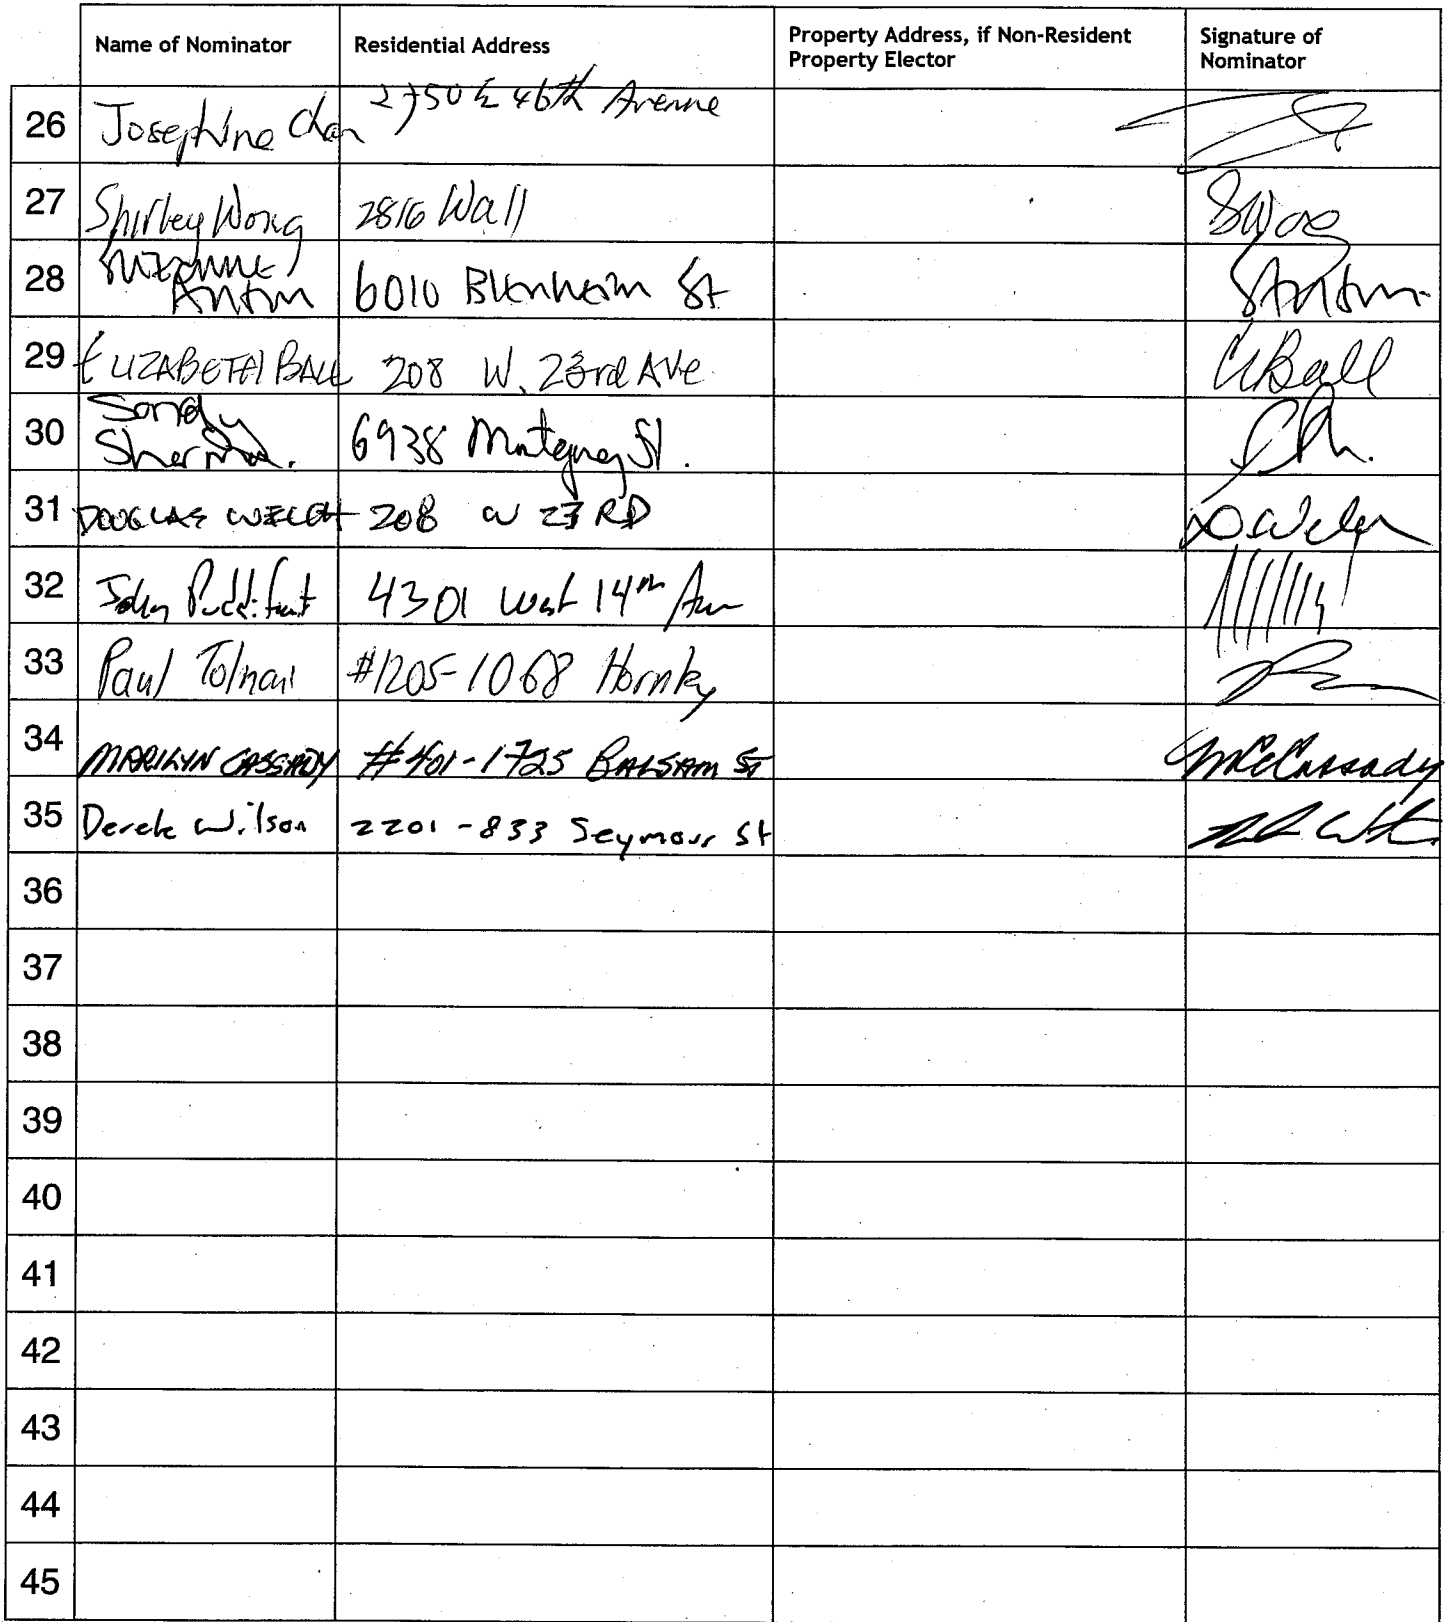 Name of Nominator Residential Address Property Address, if Non-Resident Property Elector Signature of Nominator
26 Josephine Chan 2750 E 46th Avenue
27 Shirley Wong 2816 Wall SWong
28 Suzanne Anton 6010 Blenheim St SAnton
29 ELIZABETH BALL 208 W. 23rd AVe EBall
30 Sandy Sherman. 6938 St.
31 DOUGLAS WELCH 208 W 23 RD DWelch
32 John Puddifoot 4301 West 14th Ave
33 Paul Tolnai #1205-1068 Hornby
34 MARILYN CASSADY #401-1725 BALSAM ST MCassady
35 Derek Wilson 2201-833 Seymour St
36
37
38
39
40
41
42
43
44
45